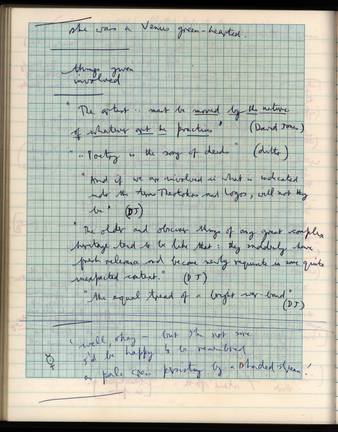 she was a Venus green-hearted.
things given
involved
"The artist .. must be moved by the nature
of whatever art he practises" (David Jones)
".. Poetry is the song of deeds" (ditto)
"And if we are involved in what is indicated
under the terms Theotokos and Logos, will not they
be" (DJ)
"The older and obscurer things of any great complex
heritage tend to be like that: they suddenly have
fresh relevance and become newly requisite in some quite
unexpected context." (DJ)
"the equal tread of a bright war-band"
(DJ)
'well, okay – but I'm not sure
I'd be happy to be
a pale by a shaded